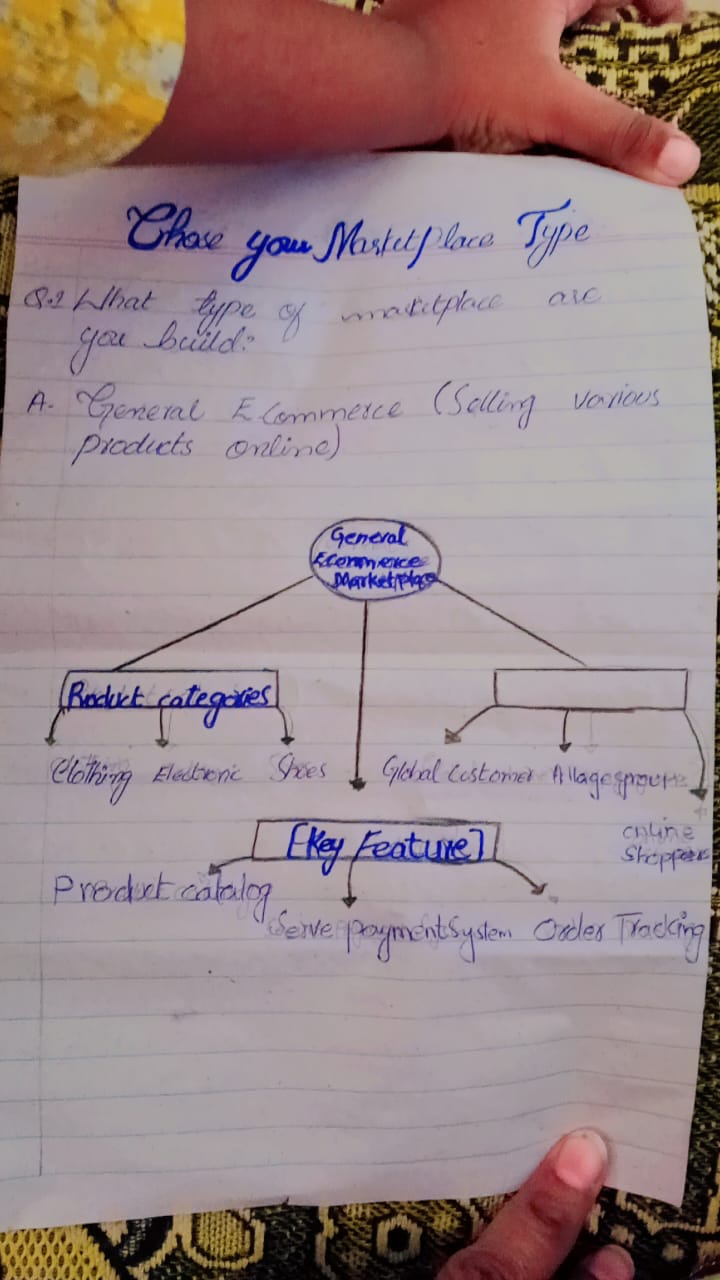 Chose your Marketplace Type
Q.1 What type of marketplace are
you build?
A. General Ecommerce (Selling various
products online)
General
Ecommerce
Marketplace
Product categories
Clothing Electronic Shoes
Global Customer All age
online
Shoppers
[Key Feature]
Product catalog
Serve payment System Order Tracking